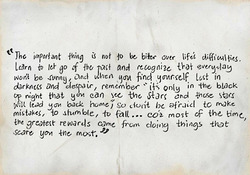 "The important thing is not to be bitter over life's difficulties.
Learn to let go of the past and recognize that everyday
won't be sunny, and when you find yourself lost in
darkness and despair, remember "it's only in the black
op night that you can see the stars and those stars
will lead you back home", so don't be afraid to make
mistakes, to stumble, to fall... coz most of the time,
the greatest rewards come from doing things that
scare you the most."